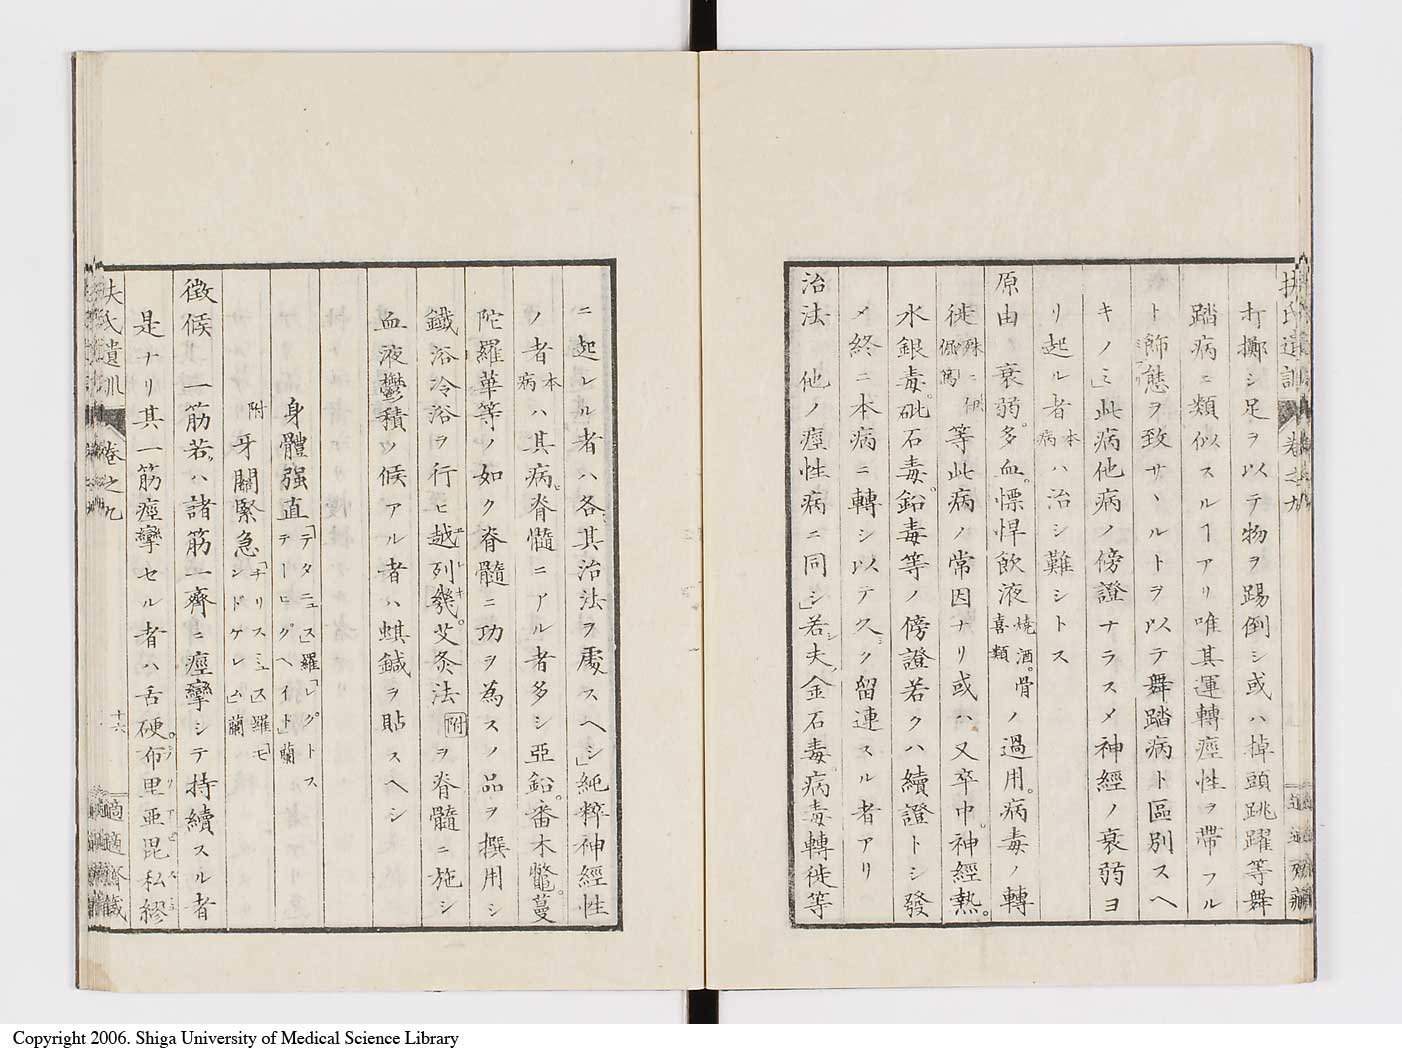 扶氏遺訓 卷之九
オ擲シ足ヲ以テ物ヲ踢倒シ或ハ掉頭跳躍等舞
踏病ニ類似スルヿアリ唯其運轉痙性ヲ帶フル
ト飾態ヲ致サヽルトヲ以テ舞踏病ト區別スヘ
キノミ」此病他病ノ傍證ナラスメ神經ノ衰弱ヨ
リ起ル者本病ハ治シ難シトス
原由 衰弱。多血。慓悍飮液燒酒。喜類骨ノ過用。病毒ノ轉
徙殊ニ痀僂等此病ノ常因ナリ或ハ又卒中。神經熱。
水銀毒。砒石毒。鉛毒等ノ傍證若クハ續證トシ發
メ終ニ本病ニ轉シ以テ久シク留連スル者アリ
治法 他ノ痙性病ニ同シ」若シ夫金石毒。病毒轉徙等
ニ起レル者ハ各其治法ヲ處スヘシ」純粹神經性
ノ者本病ハ其病脊髓ニアル者多シ亞鉛。番木鼈。蔓
陀羅華等ノ如ク脊髓ニ功ヲ為スノ品ヲ撰用シ
鐵浴冷浴ヲ行ヒ越列幾。艾灸法附ヲ脊髓ニ施シ
血液鬱積ノ候アル者ハ蜞鍼ヲ貼スヘシ
身體强直「テタニュス」羅「レグトステーヒグヘイト」蘭
附 牙關緊急「チリスミュス」羅「モンドケレム」蘭
徵候 一筋若ハ諸筋一齊ニ痙攣シテ持續スル者
是ナリ其一筋痙攣セル者ハ舌硬。布里亜毘私繆
扶氏遺訓 卷之九 十六 適適齋藏